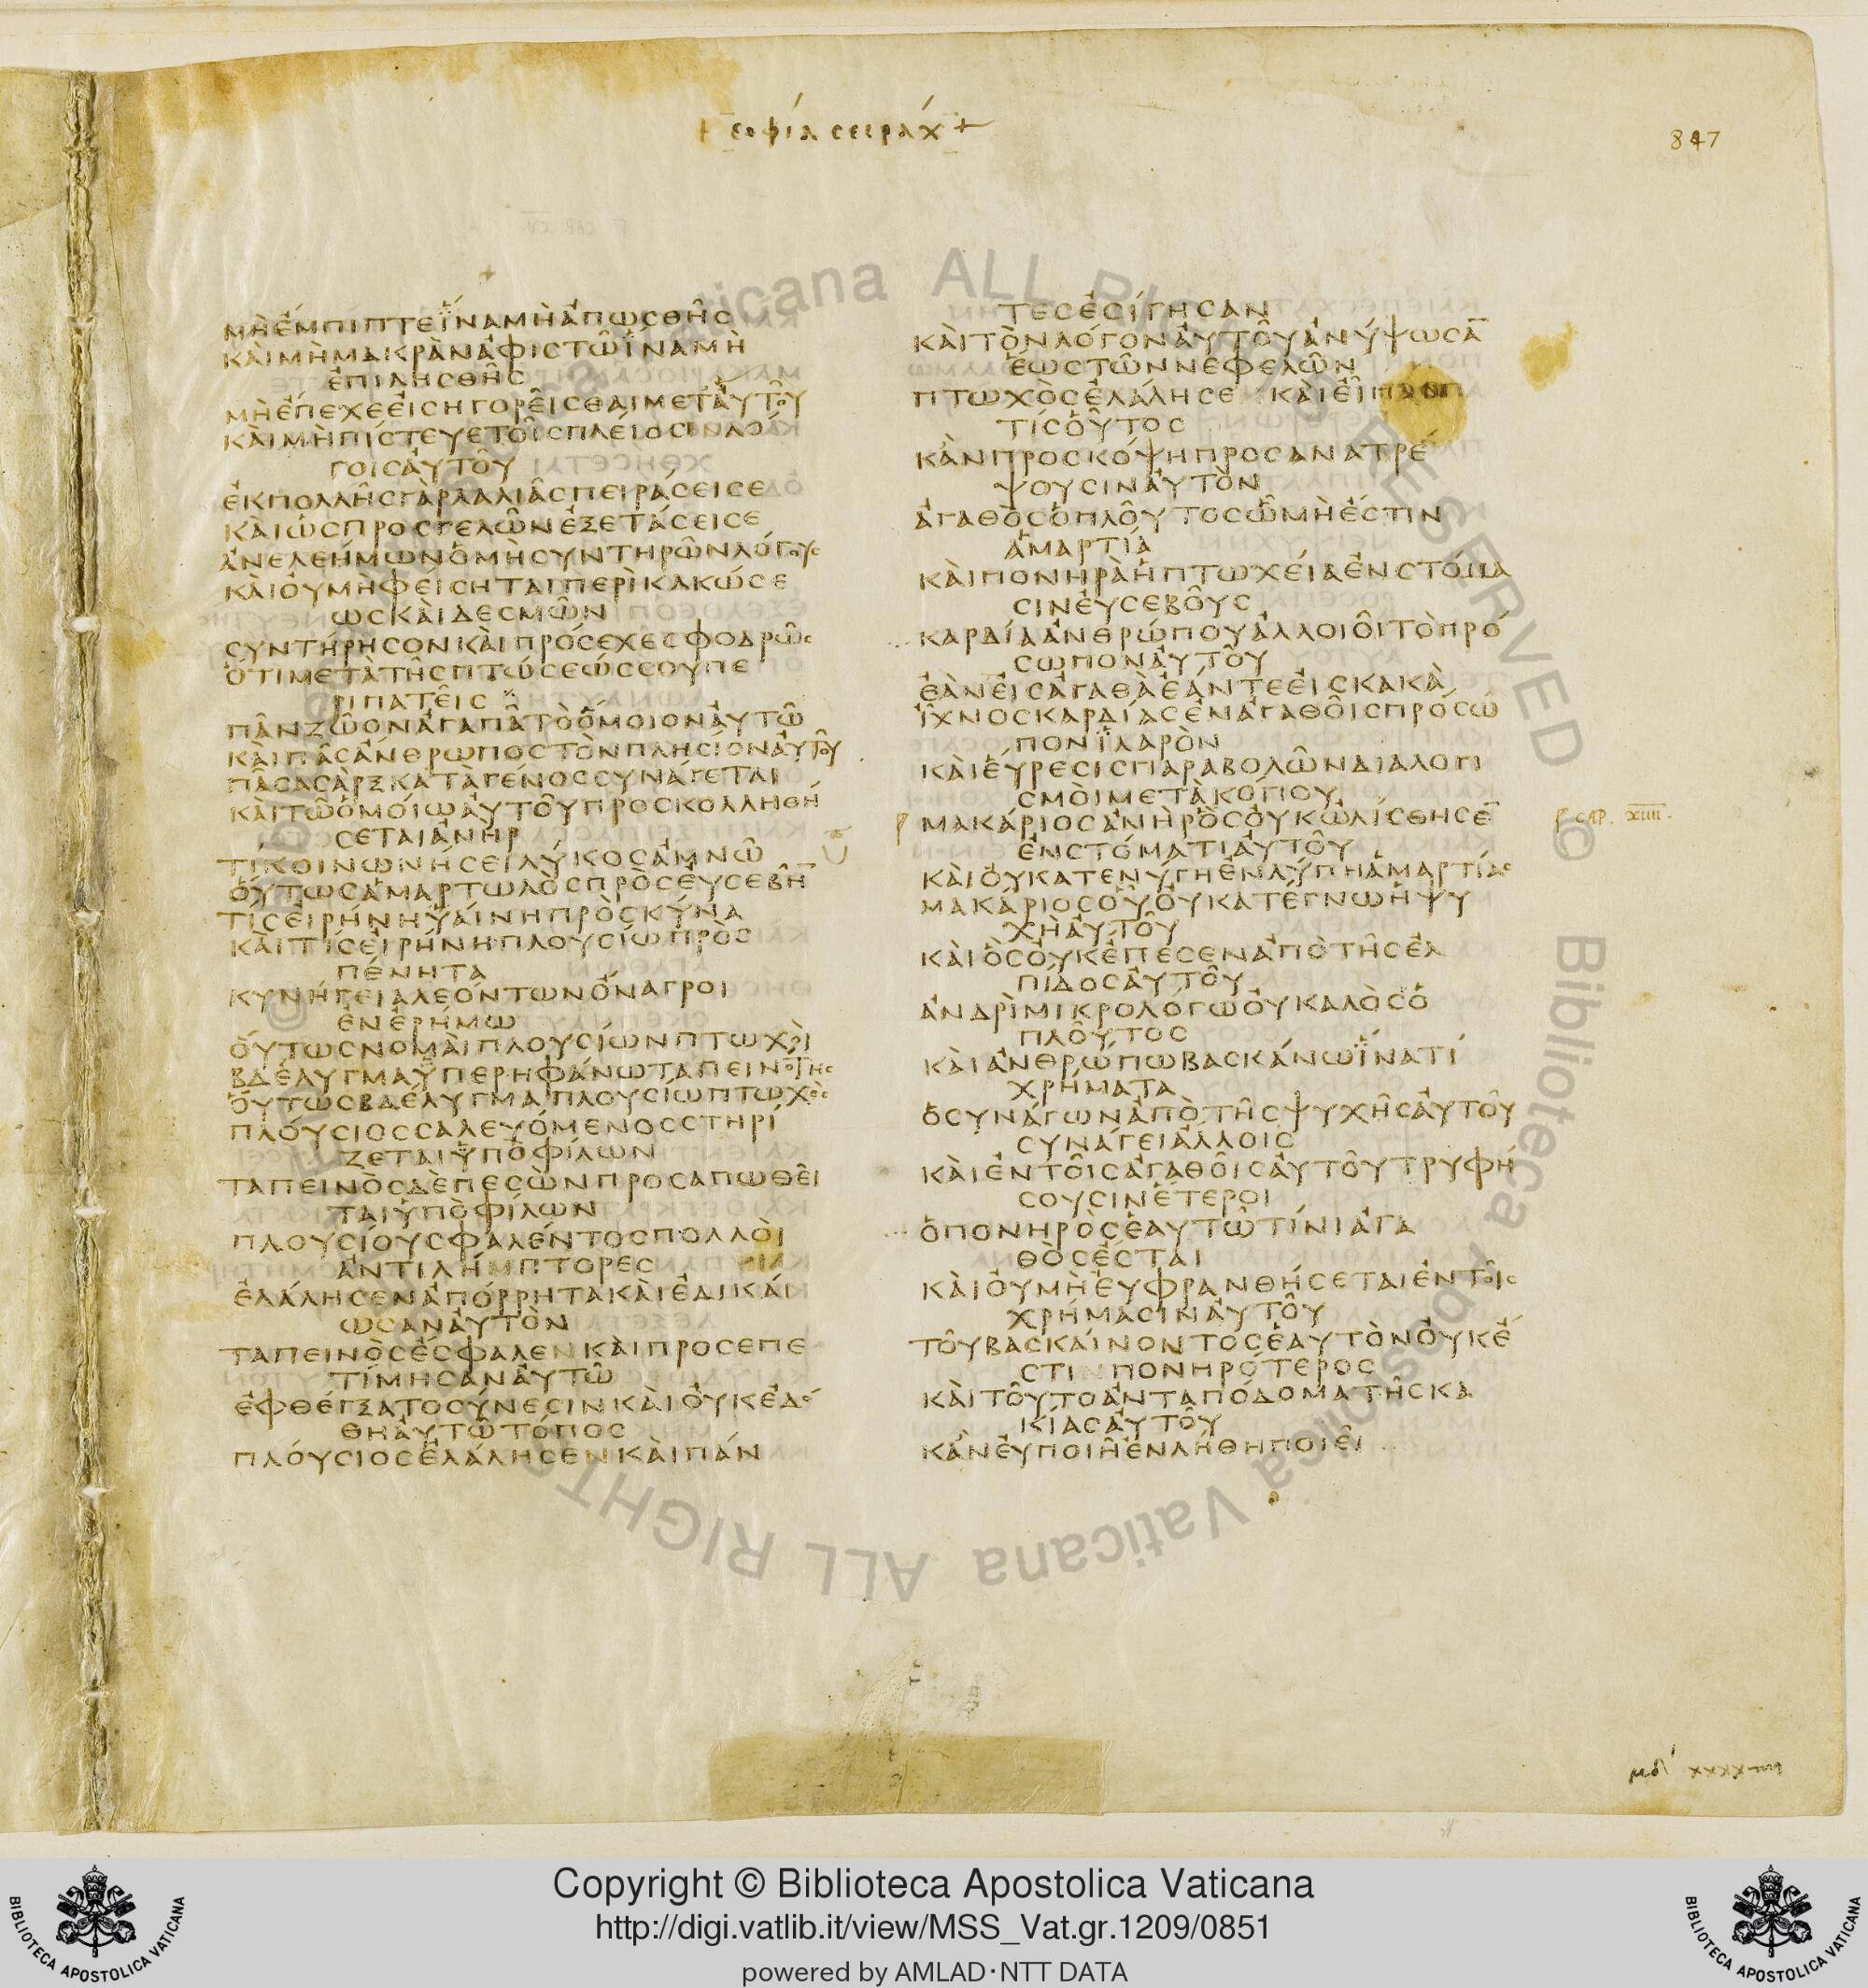 + σοφία σειραχ +
847
μὴἔμπιπτεἵναμὴἀπωσθῆς
καὶμὴμακρὰναφιστῶἵναμὴ
ἐπιλησθῆς
μὴἔπεχεεἰσηγορεῖσθαιμετἀυτοῦ
καὶμὴπίστευετοῖςπλείοσινλό
γοισἀυτοῦ
ἐκπολλῆςγὰρλαλιᾶςπειράσεισε
καιὡςπροσγελῶνἐξετάσεισε
ἀνελεήμωνὁμὴσυντηρῶνλόγους
καὶὀυμὴφείσηταιπερὶκακώσε
ωςκαὶδεσμῶν
συντήρησονκαὶπρόσεχεσφοδρῶς
ὅτιμετὰτῆςπτώσεώςσουπε
ριπατεῖς
πᾶνζῶοναγαπᾶτὸὅμοιοναυτῶ
καὶπᾶςἄνθρωποςτὸνπλησίοναυτοῦ
πᾶσασὰρξκατὰγένοςσυνάγεται
καὶτῶὁμοίωαυτοῦπροσκολληθή
σεταιἀνήρ
τίκοινωνήσειλύκοςἀμνῶ
ὅυτωςἁμαρτωλὸςπρὸςἐυσεβῆ
τίςἐιρήνηὑαίνηπρὸςκύνα
καὶτίςἐιρήνηπλουσίωπρὸς
πένητα
κυνήγειαλεόντωνὄναγροι
ἐνἐρήμω
ὅυτωςνομαὶπλουσίωνπτωχοὶ
βδέλυγμαὑπερηφάνωταπεινότης
ὅυτωςβδέλυγμαπλουσίωπτωχὸς
πλούσιοςσαλευόμενοςστηρί
ζεταιὑπὸφίλων
ταπεινὸςδὲπεσὼνπροσαπωθεῖ
ταιὑπὸφίλων
πλουσίουσφαλέντοςπολλοὶ
ἀντιλήμπτορες
ἐλάλησεναπόρρητακαὶἐδικαί
ωσαναυτὸν
ταπεινὸςἔσφαλενκαὶπροσεπε
τίμησαναυτῶ
ἐφθέγξατοσύνεσινκαὶὀυκἐδό
θηαυτῶτόπος
πλούσιοςἐλάλησενκαὶπάν
τεςἐσίγησαν
καὶτὸνλόγοναυτοῦἀνύψωσα̅
ἕωςτῶννεφελῶν
πτωχὸςἐλάλησεκαὶἐῖπαν
τίςὁῦτος
κἂνπροσκόψηπροσανατρέ
ψουσιναυτὸν
ἀγαθὸςὁπλοῦτοςὧμὴἔστιν
ἁμαρτία
καὶπονηρὰἡπτωχείαἐνστόμα
σινἐυσεβοῦς
καρδίαἀνθρώπουἀλλοιοῖτὸπρό
σωπονἀυτοῦ
ἐὰνἐιςἀγαθὰἐάντεἐιςκακὰ
ἴχνοςκαρδίαςἐνἀγαθοῖςπρόσω
πονἱλαρὸν
καὶἕυρεσιςπαραβολῶνδιαλογι
σμὸιμετὰκόπου
μακάριοςἀνὴρὃςὀυκὠλίσθησε̅
ἐνστόματιἀυτοῦ
καὶὀυκατενύγηἐνλύπηἁμαρτίας
μακάριοςοὗὀυκατέγνωἡψυ
χὴἀυτοῦ
καὶὃςὀυκἔπεσεναπὸτῆςἐλ
πίδοςἀυτοῦ
ἀνδρὶμικρολόγωὀυκαλὸςὁ
πλοῦτος
καὶἀνθρώπωβασκάνωἵνατί
χρήματα
ὁσυνάγωνἀπὸτῆςψυχῆςἀυτοῦ
συνάγειἄλλοις
καὶἐντοῖςἀγαθοῖςἀυτοῦτρυφή
σουσινἕτεροι
ὁπονηρὸςἑαυτῶτίνιἀγα
θὸςἔσται
καὶὀυμὴἐυφρανθήσεταιἐντοῖς
χρήμασιναυτοῦ
τοῦβασκαίνοντοςἑαυτὸνὀυκἔ
στινπονηρότερος
καὶτοῦτοἀνταπόδοματῆςκα
κίαςἀυτοῦ
κἂνἐυποιῆἐνλήθηποιεῖ
CAP. XIIII.
Copyright © Biblioteca Apostolica Vaticana
http://digi.vatlib.it/view/MSS_Vat.gr.1209/0851
powered by AMLAD·NTT DATA
BIBLIOTECA APOSTOLICA VATICANA
BIBLIOTECA APOSTOLICA VATICANA
© Biblioteca Apostolica Vaticana ALL RIGHTS RESERVED